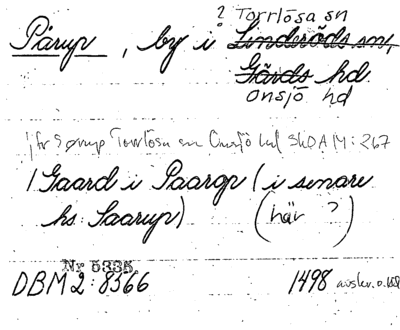 ? Torrlösa sn
Pårup, by i Linderöds sn,
Gärds hd.
Onsjö hd
jfr Sørup Torrlösa sn Onsjö hd SkOA M: 267
1 Gaard i Paarop (i senare
hs: Saarup) (här ?)
Nr 5335.
DBM 2: 8566 1498 avskr. o.